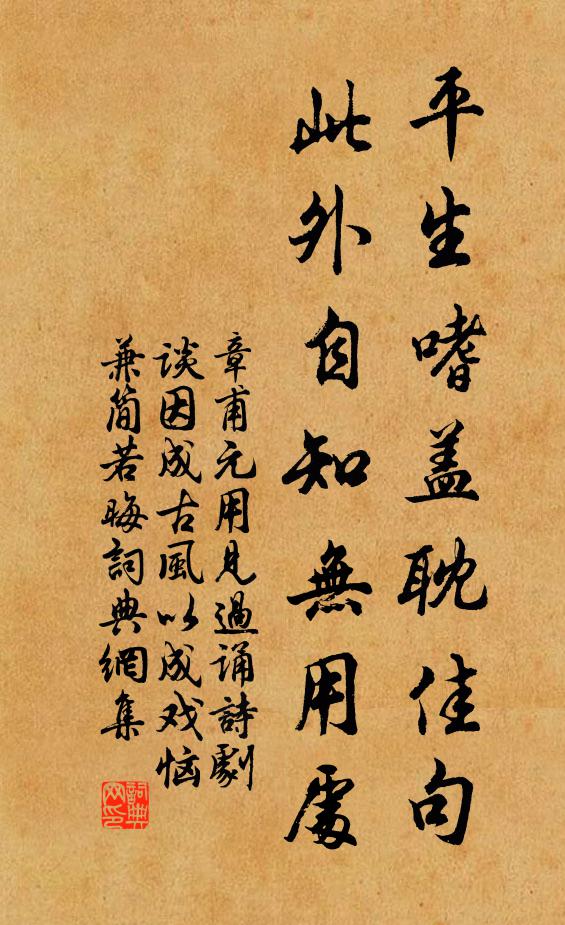 平生嗜盖耽佳句
此外自知無用處
章甫元用見過誦詩劇
谈因成古風以成戏恼
兼简若晦詞典網集
詞典网印